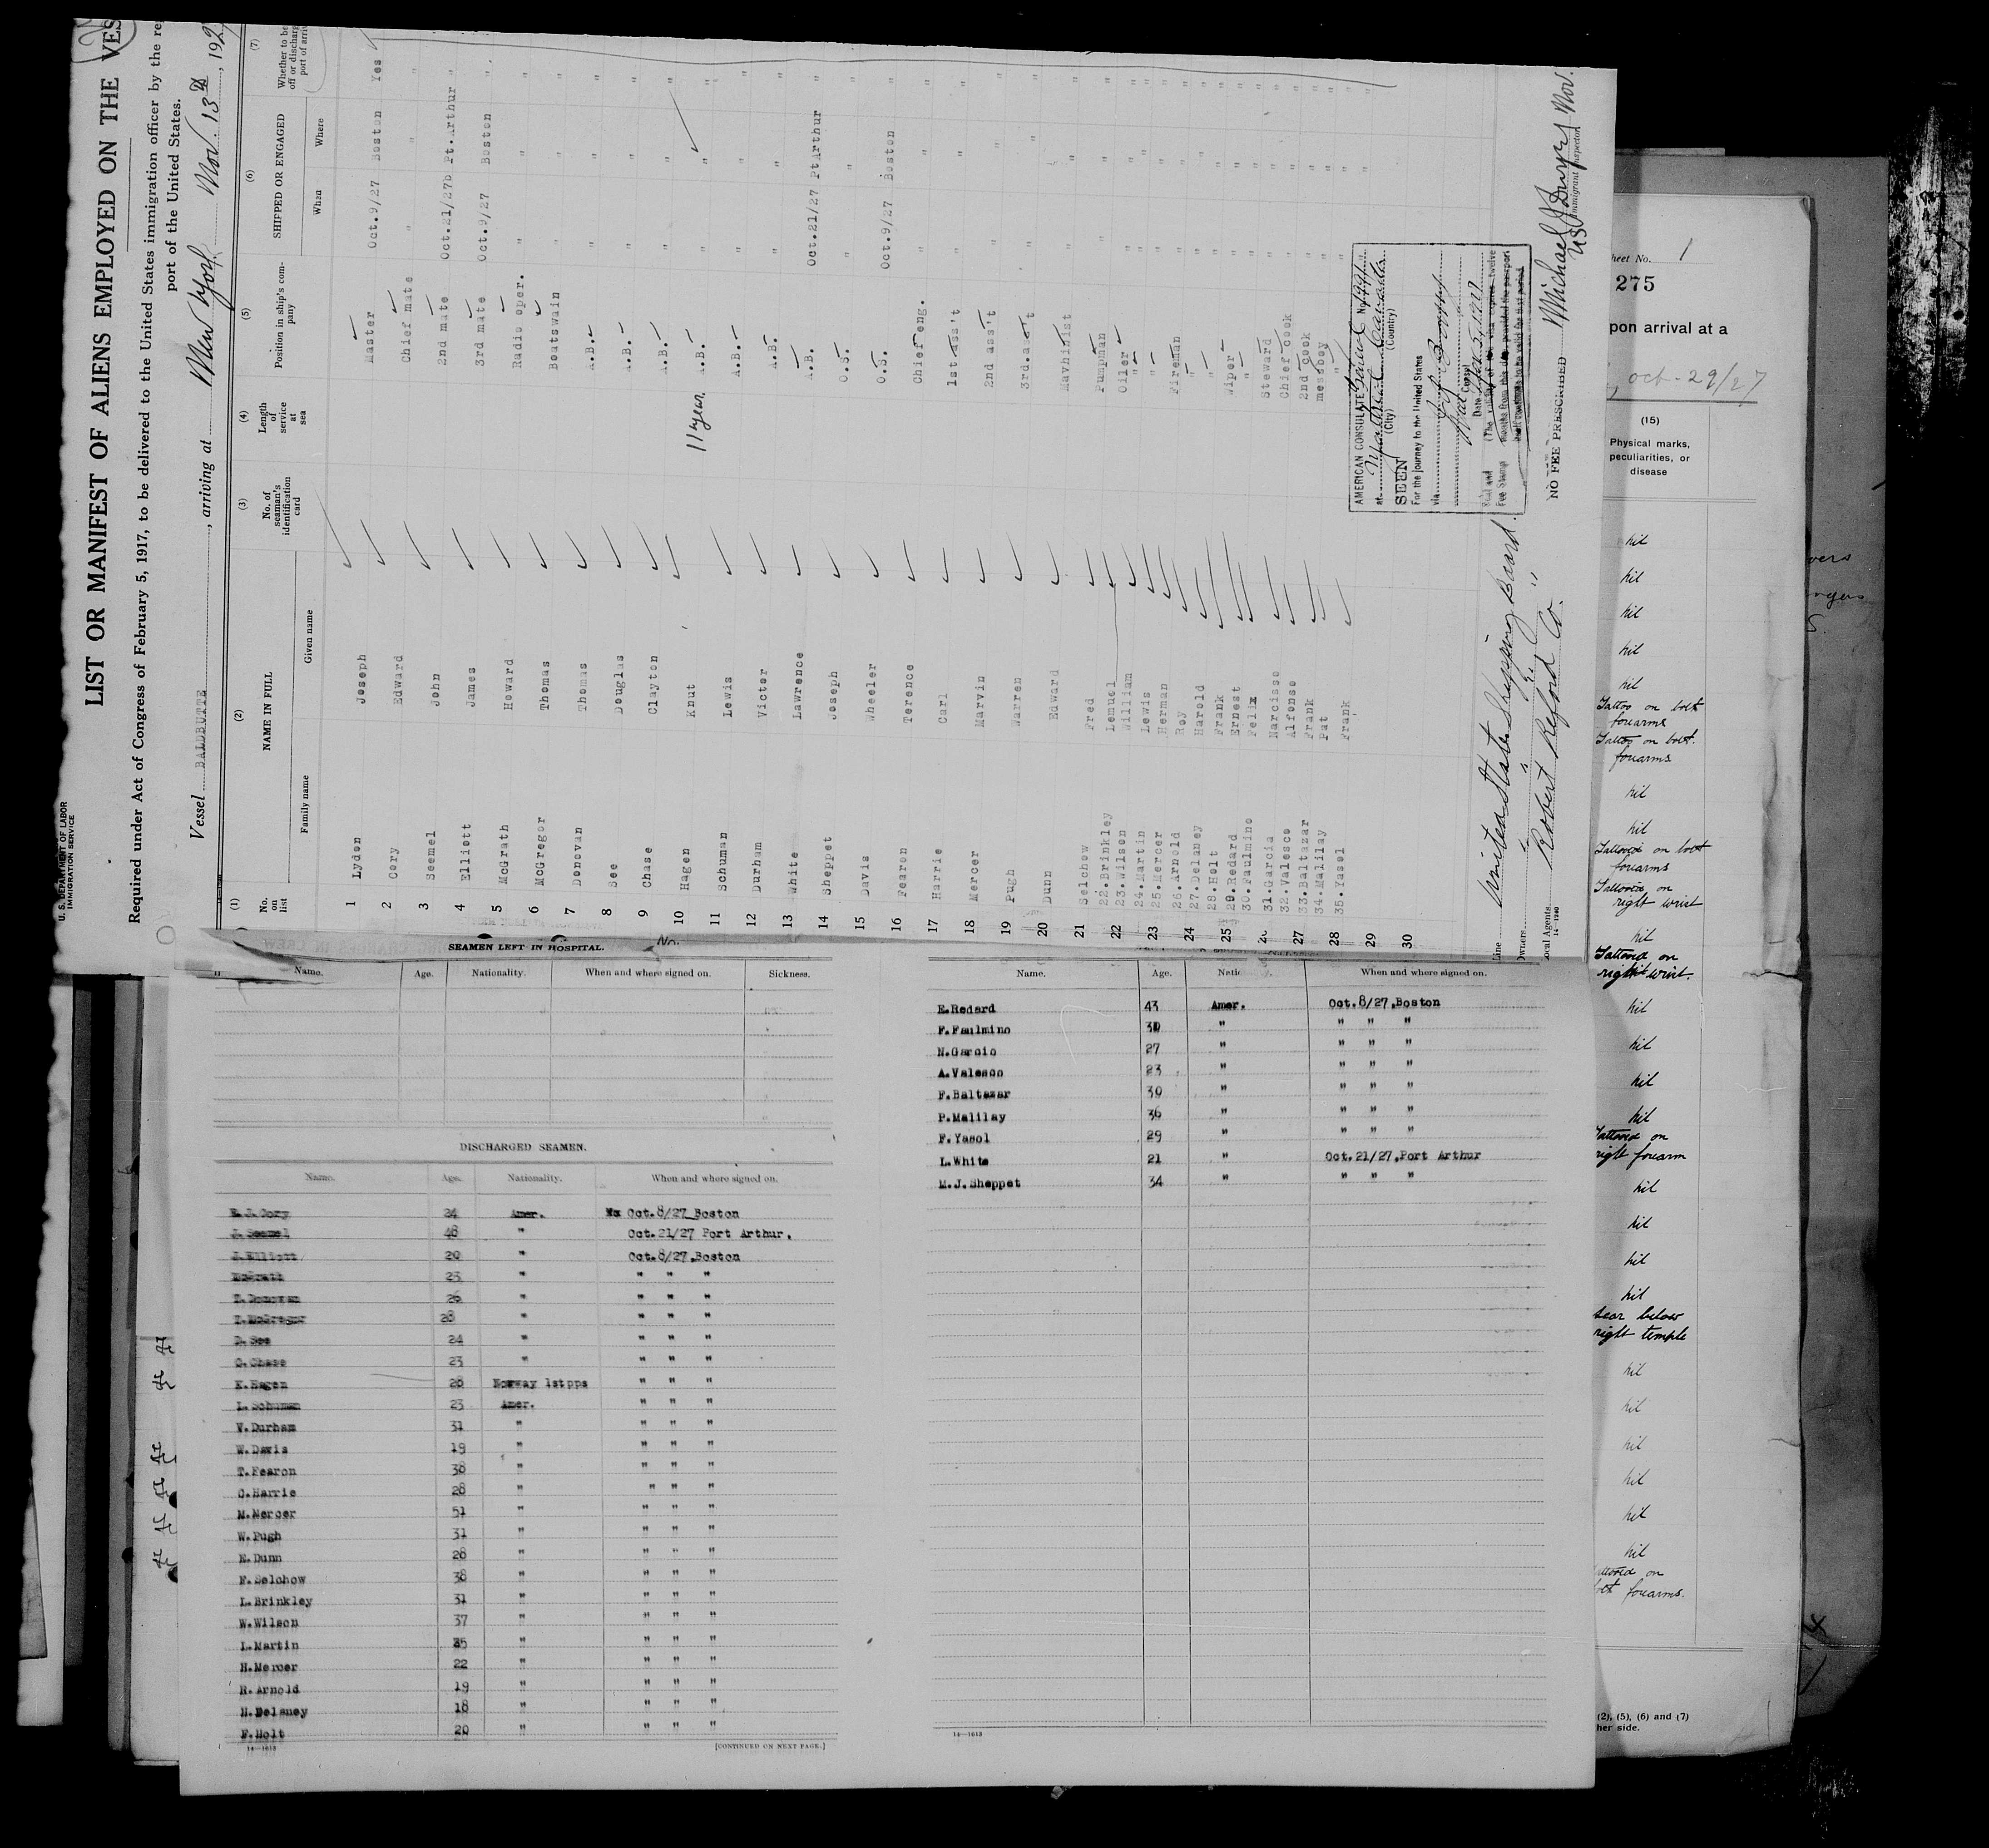 U. S. DEPARTMENT OF LABOR
IMMIGRATION SERVICE
LIST OR MANIFEST OF ALIENS EMPLOYED ON THE VES
Required under Act of Congress of February 5, 1917, to be delivered to the United States immigration officer by the re
port of the United States.
Vessel BALDBUTTE, arriving at New York Nov. 13th, 192
(1) (2) (3) (4) (5) (6) (7)
No. on list NAME IN FULL No. of seaman's identification card Length of service at sea Position in ship's com-pany SHIPPED OR ENGAGED Whether to be
off or discharg
port of arriv
Family name Given name When Where
1 Lydon Joseph Master Oct.9/27 Boston Yes
2 Cory Edward Chief mate " " "
3 Seemel John 2nd mate Oct.21/27 Pt.Arthur "
4 Elliott James 3rd mate Oct.9/27 Boston "
5 McGrath Howard Radio oper. " " "
6 McGregor Thomas Boatswain " " "
7 Donovan Thomas A.B. " " "
8 See Douglas A.B. " " "
9 Chase Clayton A.B. " " "
10 Hagen Knut 11 year A.B. " " "
11 Schuman Lewis A.B. " " "
12 Durham Victor A.B. " " "
13 White Lawrence A.B. Oct.21/27 PtArthur "
14 Sheppet Joseph O.S. " " "
15 Davis Wheeler O.S. Oct.9/27 Boston "
16 Fearon Terence Chief eng. " " "
17 Harrie Carl 1st ass't " " "
18 Mercer Marvin 2nd ass't " " "
19 Pugh Warren 3rd.a s't " " "
20 Dunn Edward Mavhinist " " "
21 Selchow Fred Pumpman " " "
22 22.Brinkley Lemuel Oiler " " "
23 23.Wilson William " " " "
24.Martin Lewis " " " "
24 25.Mercer Herman Fireman " " "
26.Arnold Roy " " " "
25 27.Delaney Harold " " " "
28.Holt Frank Wiper " " "
26 29.Redard Ernest " " " "
30.Faulmino Felix Steward " " "
27 31.Garcia Narcisso Chief cook " " "
32.Valesco Alfonso 2nd cook " " "
28 33.Baltazar Frank messboy " " "
34.Malilay Pat " " " "
29 35.Yasel Frank " " " "
30
AMERICAN CONSULATE General No.
at Montreal Canada
(City) (Country)
SEEN
For the journey to the United States
via
Consul
Date Nov. 5, 1927
Seal and
Fee Stamp
NO FEE PRESCRIBED
Line United States Shipping Board.
Owners " " " "
Local Agents Robert Reford Co.
14—1240
Michael J Dwyer Nov.
US Immigrant Inspector
SEAMEN LEFT IN HOSPITAL.
Name. Age. Nationality. When and where signed on. Sickness.
DISCHARGED SEAMEN.
Name. Age. Nationality. When and where signed on.
E.J.Cory 24 Amer. Oct.8/27 Boston
J.Seemel 48 " Oct.21/27 Port Arthur.
J.Elliott 20 " Oct.8/27,Boston
McGrath 23 " " " "
T.Donovan 26 " " " "
T.McGregor 28 " " " "
D.See 24 " " " "
C.Chase 23 " " " "
K.Hagen 28 Norway 1stpps " " "
L.Schuman 23 Amer. " " "
V.Durham 31 " " " "
W.Davis 19 " " " "
T.Fearon 38 " " " "
C.Harrie 28 " " " "
M.Mercer 51 " " " "
W.Pugh 31 " " " "
E.Dunn 28 " " " "
F.Selchow 38 " " " "
L.Brinkley 31 " " " "
W.Wilson 37 " " " "
L.Martin 25 " " " "
H.Mercer 22 " " " "
R.Arnold 19 " " " "
H.Delaney 18 " " " "
F.Holt 20 " " " "
14—1613
[CONTINUED ON NEXT PAGE.]
Name. Age. When and where signed on.
E.Redard 43 Amer. Oct.8/27,Boston
F.Faulmino 30 " " " "
N.Garcio 27 " " " "
A.Valesco 23 " " " "
F.Baltazar 30 " " " "
P.Malilay 36 " " " "
F.Yasol 29 " " " "
L.White 21 " Oct.21/27,Port Arthur
M.J.Sheppet 34 " " " "
14—1613
heet No. 1
275
pon arrival at a
, Oct-29/27
(15)
Physical marks,
peculiarities, or
disease
nil
nil
nil
nil
nil
Tattoo on both
forearms
Tattoo on both
forearms
nil
nil
Tattooed on both
forearms
Tattooed on
right wrist
nil
Tattooed on
right wrist.
nil
nil
nil
nil
Tattooed on
right forearm
nil
nil
nil
nil
scar below
right temple
nil
nil
nil
nil
nil
nil
attooed on
both forearms.
(2), (5), (6) and (7)
her side.